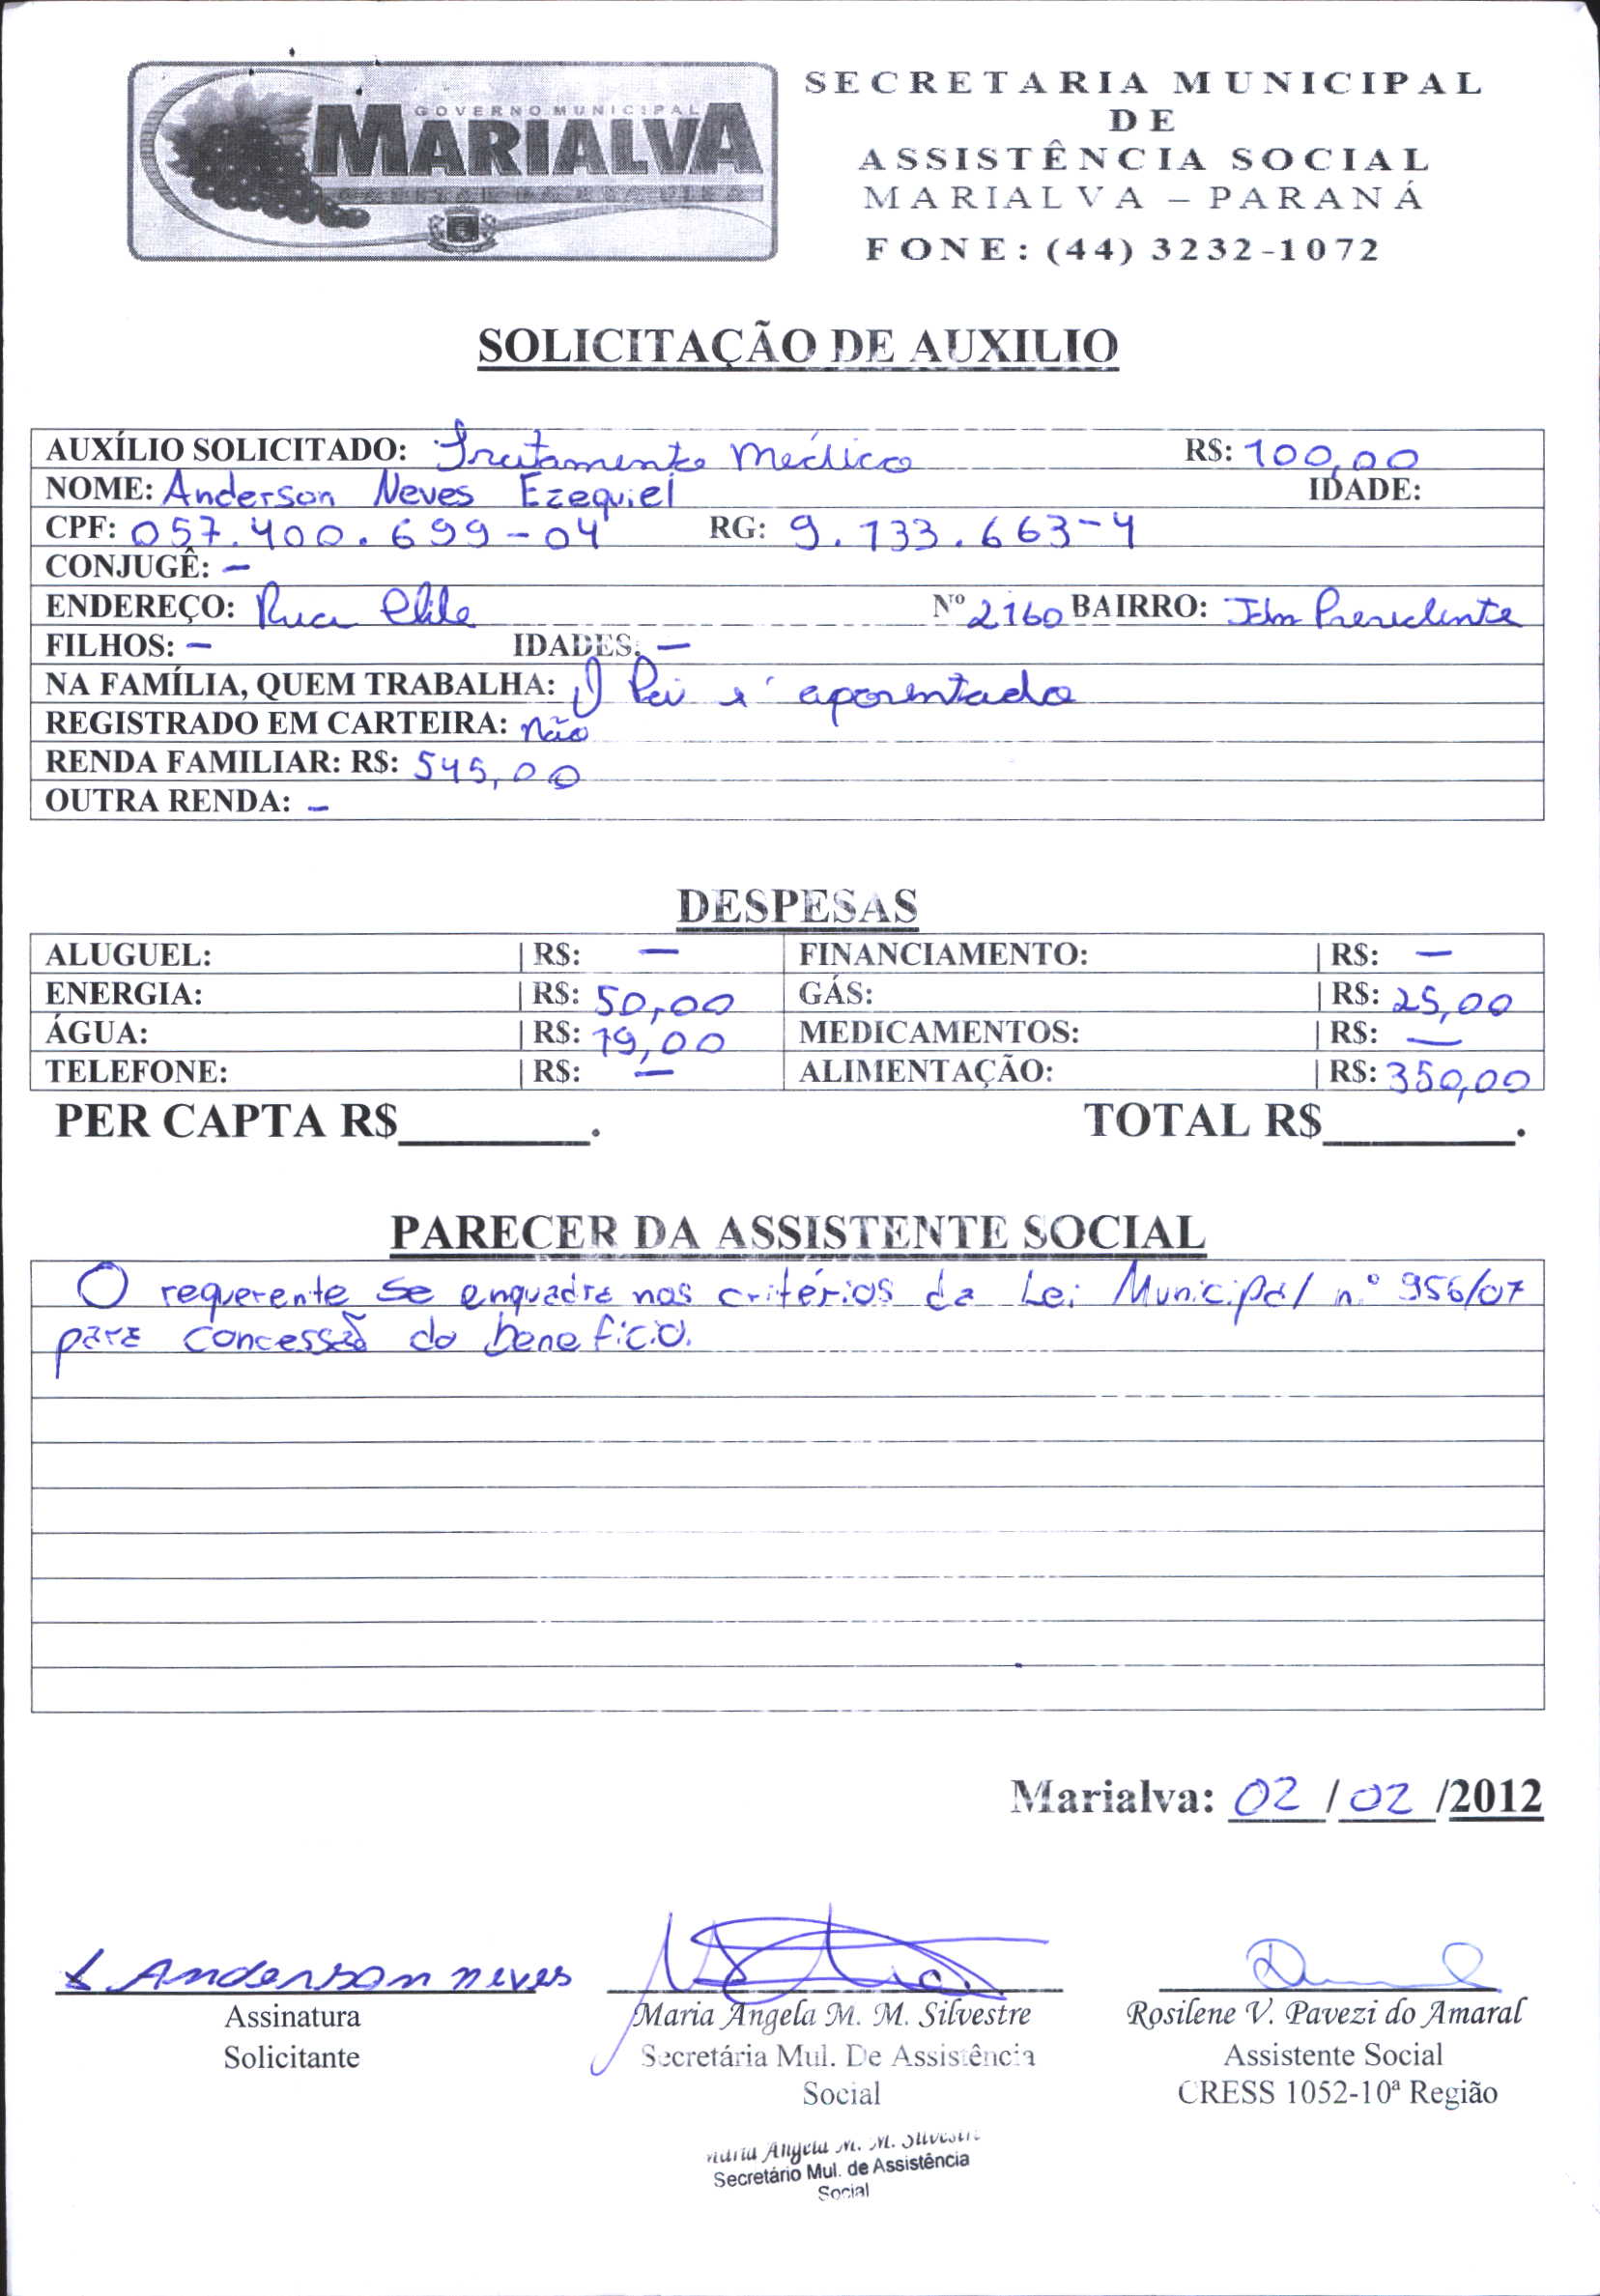 GOVERNO MUNICIPAL
MARIALVA
SECRETARIA MUNICIPAL
DE
ASSISTÊNCIA SOCIAL
MARIALVA – PARANÁ
FONE: (44) 3232-1072
SOLICITAÇÃO DE AUXILIO
AUXÍLIO SOLICITADO: Tratamento Médico R$: 100,00
NOME: Anderson Neves Ezequiel IDADE:
CPF: 057.400.699-04 RG: 9.133.663-4
CONJUGÊ: –
ENDEREÇO: Rua Nº 2160 BAIRRO: Jdm Presidente
FILHOS: – IDADES: –
NA FAMÍLIA, QUEM TRABALHA: O Pai é aposentado
REGISTRADO EM CARTEIRA: não
RENDA FAMILIAR: R$: 545,00
OUTRA RENDA: –
DESPESAS
ALUGUEL: | R$: – FINANCIAMENTO: | R$: –
ENERGIA: | R$: 50,00 GÁS: | R$: 25,00
ÁGUA: | R$: 19,00 MEDICAMENTOS: | R$: –
TELEFONE: | R$: – ALIMENTAÇÃO: | R$: 350,00
PER CAPTA R$________. TOTAL R$________.
PARECER DA ASSISTENTE SOCIAL
O requerente se enquadra nos critérios da Lei Municipal n.º 956/07
para concessão do benefício.
Marialva: 02 / 02 /2012
Anderson neves
Assinatura Maria Ângela M. M. Silvestre Rosilene V. Pavezi do Amaral
Solicitante Secretária Mul. De Assistência Assistente Social
Social CRESS 1052-10ª Região
Maria Angela M. M. Silvestre
Secretário Mul. de Assistência
Social